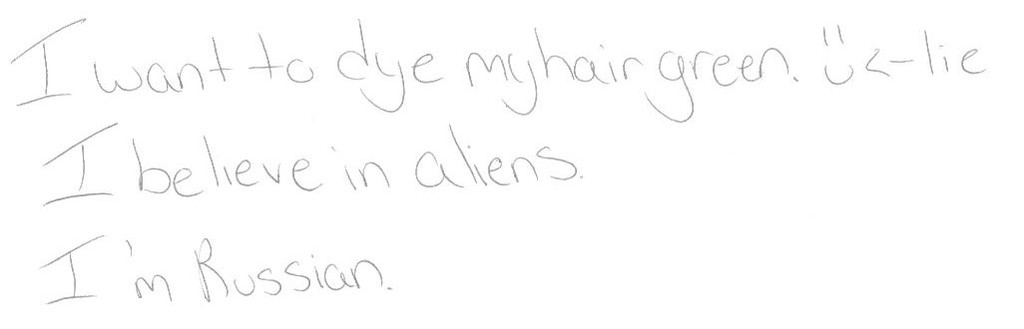 I want to dye my hair green. Ü <- lie
I believe in aliens.
I'm Russian.